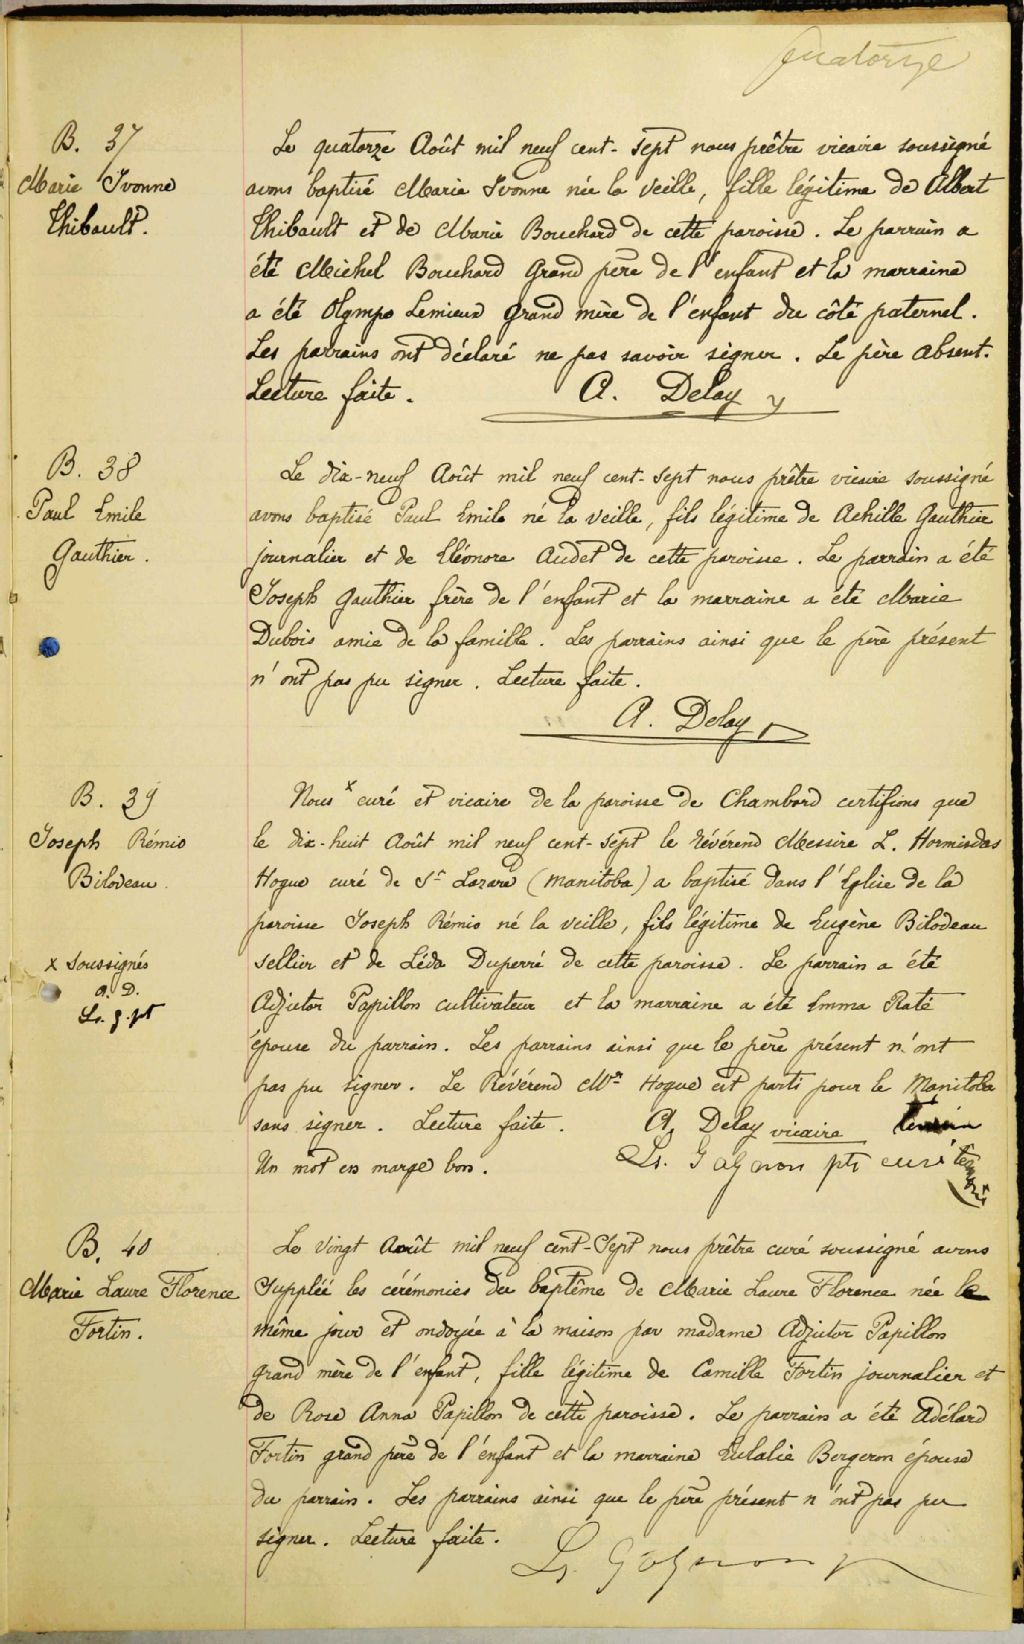 quatorze
B. 37
Marie Ivonne
Thibault.
Le quatorze Août mil neuf cent-sept nous prêtre vicaire soussigné
avons baptisé Marie Ivonne née la veille, fille légitime de Albert
Thibault et de Marie Bouchard de cette paroisse. Le parrain a
été Michel Bouchard Grand père de l'enfant et la marraine
a été Olympe Lemieux grand mère de l'enfant du côté paternel.
Les parrains ont déclaré ne pas savoir signer. Le père absent.
Lecture faite. A. Delay
B. 38
Paul Emile
Gauthier.
Le dix-neuf Août mil neuf cent-sept nous prêtre vicaire soussigné
avons baptisé Paul Emile né la veille, fils légitime de Achille Gauthier
journalier et de Eléonore Audet de cette paroisse. Le parrain a été
Joseph Gauthier frère de l'enfant et la marraine a été Marie
Dubois amie de la famille. Les parrains ainsi que le père présent
n'ont pas pu signer. Lecture faite.
A. Delay
B. 39
Joseph Rémio
Bilodeau.
x soussignés
a. D.
Ls. g. pt
Nous x curé et vicaire de la paroisse de Chambord certifions que
le dix-huit Août mil neuf cent-sept le révérend Messire L. Hormisdas
Hogue curé de St Lazare (Manitoba) a baptisé dans l'Eglise de la
paroisse Joseph Rémio né la veille, fils légitime de Eugène Bilodeau
sellier et de Léda Duperré de cette paroisse. Le parrain a été
Adjutor Papillon cultivateur et la marraine a été Emma Raté
épouse du parrain. Les parrains ainsi que le père présent n'ont
pas pu signer. Le Révérend Mr Hogue est parti pour le Manitoba
sans signer. Lecture faite. A. Delay vicaire témoin
Un mot en marge bon. Ls. Gagnon ptr curé témoin
B. 40
Marie Laure Florence
Fortin.
Le vingt Août mil neuf cent-sept nous prêtre curé soussigné avons
suppléé les cérémonies du baptême de Marie Laure Florence née le
même jour et ondoyée à la maison par madame Adjutor Papillon
grand mère de l'enfant, fille légitime de Camille Fortin journalier et
de Rose Anna Papillon de cette paroisse. Le parrain a été Adélard
Fortin grand père de l'enfant et la marraine Eulalie Bergeron épouse
du parrain. Les parrains ainsi que le père présent n'ont pas pu
signer. Lecture faite.
Ls. Gagnon